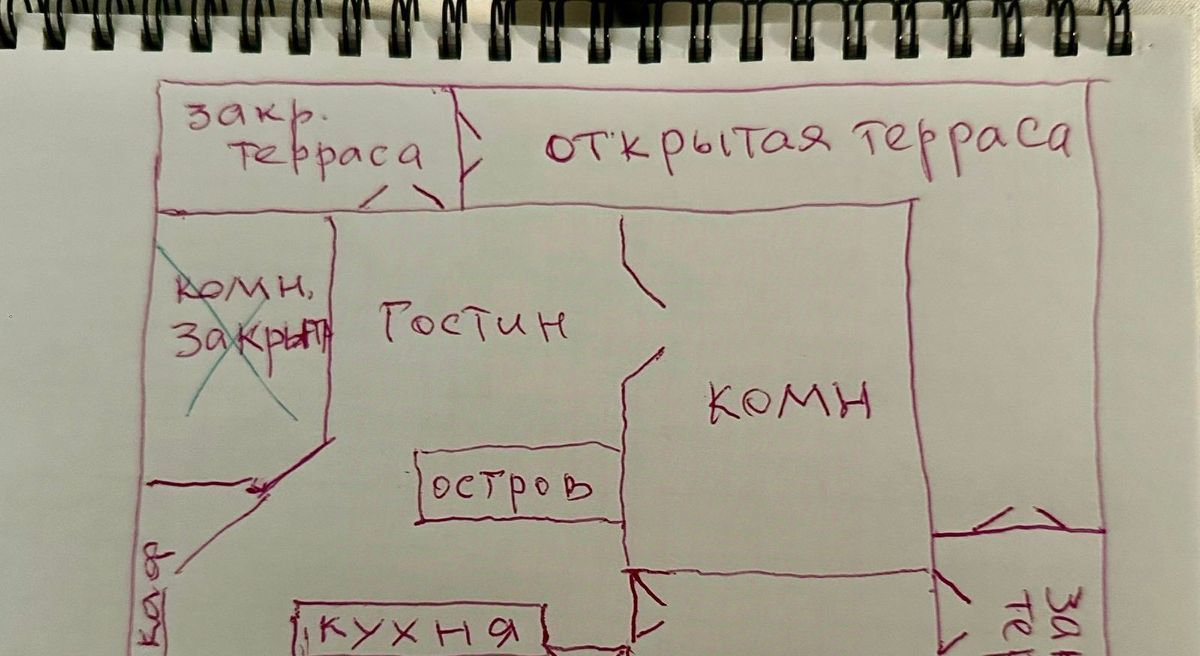 закр.
терраса
открытая терраса
комн.
закрыт
Гостин
комн
остров
кухня